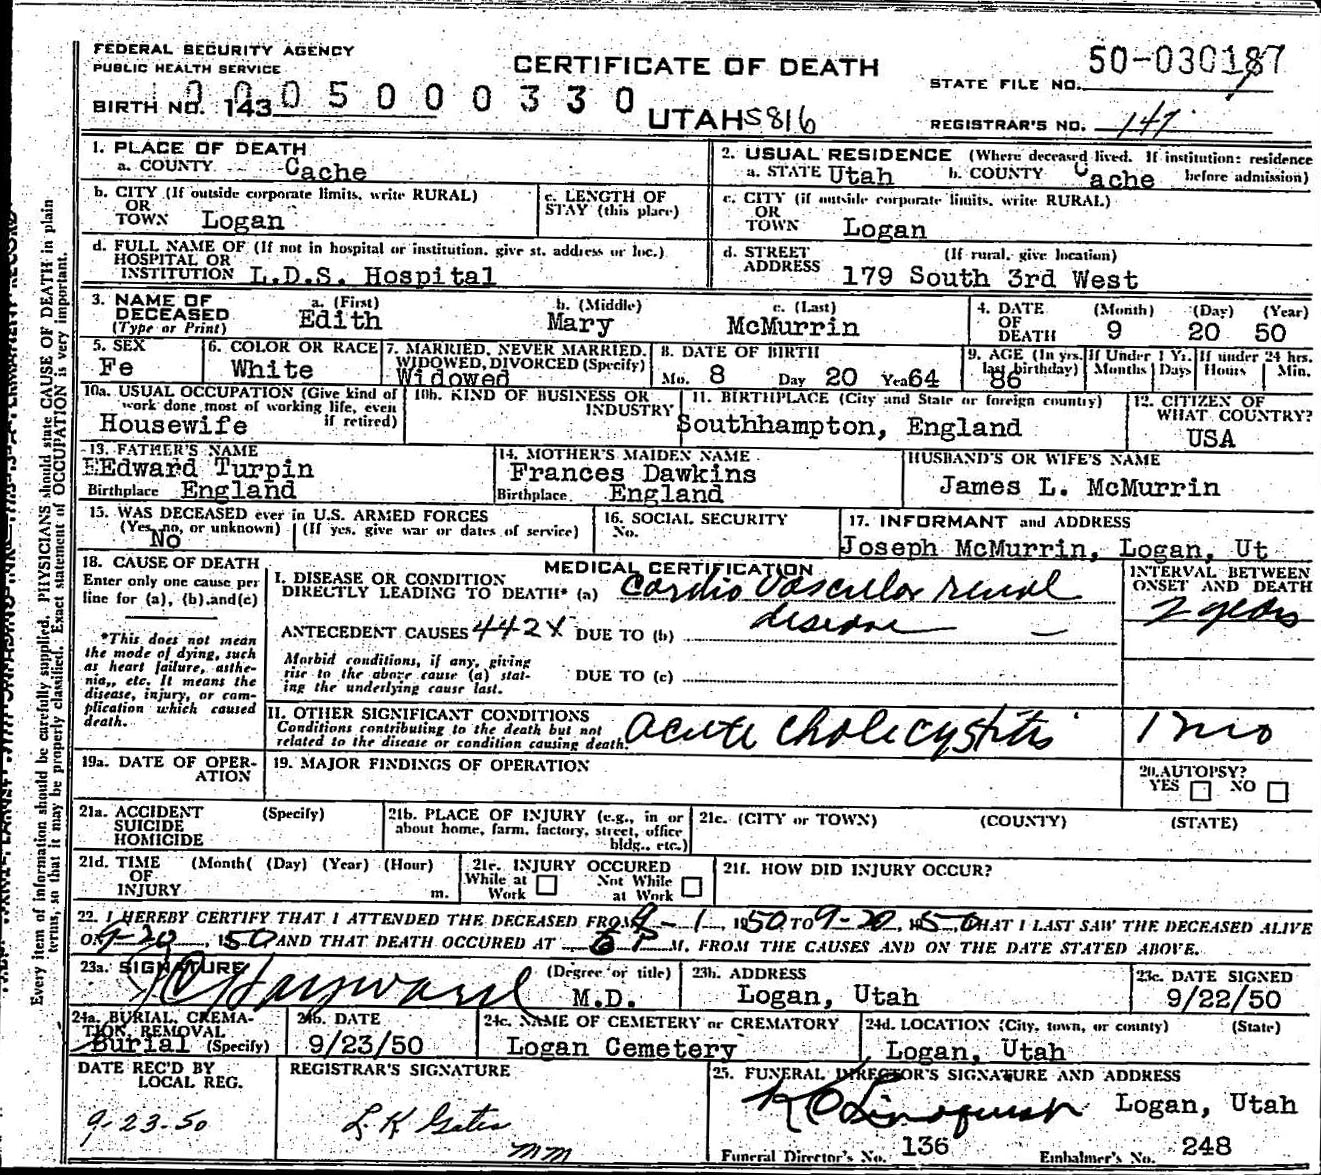 FEDERAL SECURITY AGENCY
PUBLIC HEALTH SERVICE
CERTIFICATE OF DEATH
50-030187
STATE FILE NO.
BIRTH NO. 143
0005000330
UTAH S816
REGISTRAR'S NO. 147
1. PLACE OF DEATH
a. COUNTY Cache
2. USUAL RESIDENCE (Where deceased lived. If institution: residence before admission)
a. STATE Utah b. COUNTY Cache
b. CITY (If outside corporate limits, write RURAL)
OR
TOWN Logan
c. LENGTH OF
STAY (this place)
c. CITY (if outside corporate limits, write RURAL)
OR
TOWN Logan
d. FULL NAME OF (If not in hospital or institution, give st. address or loc.)
HOSPITAL OR
INSTITUTION L.D.S. Hospital
d. STREET (If rural, give location)
ADDRESS 179 South 3rd West
3. NAME OF DECEASED
(Type or Print)
a. (First) b. (Middle) c. (Last)
Edith Mary McMurrin
4. DATE OF DEATH
(Month) (Day) (Year)
9 20 50
5. SEX
Fe
6. COLOR OR RACE
White
7. MARRIED, NEVER MARRIED,
WIDOWED, DIVORCED (Specify)
Widowed
8. DATE OF BIRTH
Mo. 8 Day 20 Year 64
9. AGE (In yrs. last birthday)
86
If Under 1 Yr.
Months Days
If under 24 hrs.
Hours Min.
10a. USUAL OCCUPATION (Give kind of
work done most of working life, even
if retired)
Housewife
10b. KIND OF BUSINESS OR
INDUSTRY
11. BIRTHPLACE (City and State or foreign country)
Southhampton, England
12. CITIZEN OF
WHAT COUNTRY?
USA
13. FATHER'S NAME
EEdward Turpin
Birthplace England
14. MOTHER'S MAIDEN NAME
Frances Dawkins
Birthplace England
HUSBAND'S OR WIFE'S NAME
James L. McMurrin
15. WAS DECEASED ever in U.S. ARMED FORCES
(Yes, no, or unknown) (If yes, give war or dates of service)
No
16. SOCIAL SECURITY
No.
17. INFORMANT and ADDRESS
Joseph McMurrin, Logan, Ut
18. CAUSE OF DEATH
Enter only one cause per
line for (a), (b), and (c)
*This does not mean
the mode of dying, such
as heart failure, asthe-
nia, etc. It means the
disease, injury, or com-
plication which caused
death.
MEDICAL CERTIFICATION
I. DISEASE OR CONDITION
DIRECTLY LEADING TO DEATH* (a) Cardio Vascular renal
disease
ANTECEDENT CAUSES 442X DUE TO (b)
Morbid conditions, if any, giving
rise to the above cause (a) stat-
ing the underlying cause last.
DUE TO (c)
INTERVAL BETWEEN
ONSET AND DEATH
2 years
II. OTHER SIGNIFICANT CONDITIONS
Conditions contributing to the death but not
related to the disease or condition causing death.
acute cholecystitis
1 mo
19a. DATE OF OPER-
ATION
19. MAJOR FINDINGS OF OPERATION
20. AUTOPSY?
YES NO
21a. ACCIDENT (Specify)
SUICIDE
HOMICIDE
21b. PLACE OF INJURY (e.g., in or
about home, farm, factory, street, office
bldg., etc.)
21c. (CITY or TOWN) (COUNTY) (STATE)
21d. TIME (Month( (Day) (Year) (Hour)
OF
INJURY m.
21e. INJURY OCCURED
While at Work Not While at Work
21f. HOW DID INJURY OCCUR?
22. I HEREBY CERTIFY THAT I ATTENDED THE DECEASED FROM 9-1, 1950 TO 9-20, 1950, THAT I LAST SAW THE DECEASED ALIVE
ON 9-20, 1950 AND THAT DEATH OCCURED AT 6 P M. FROM THE CAUSES AND ON THE DATE STATED ABOVE.
23a. SIGNATURE (Degree or title)
Hayward M.D.
23b. ADDRESS
Logan, Utah
23c. DATE SIGNED
9/22/50
24a. BURIAL, CREMA-
TION, REMOVAL
Burial (Specify)
24b. DATE
9/23/50
24c. NAME OF CEMETERY or CREMATORY
Logan Cemetery
24d. LOCATION (City, town, or county) (State)
Logan, Utah
DATE REC'D BY
LOCAL REG.
9-23-50
REGISTRAR'S SIGNATURE
L. K Gates
mm
25. FUNERAL DIRECTOR'S SIGNATURE AND ADDRESS
Lindquist Logan, Utah
Funeral Director's No. 136 Embalmer's No. 248
Every item of information should be carefully supplied. PHYSICIANS should state CAUSE OF DEATH in plain
terms, so that it may be properly classified. Exact statement of OCCUPATION is very important.